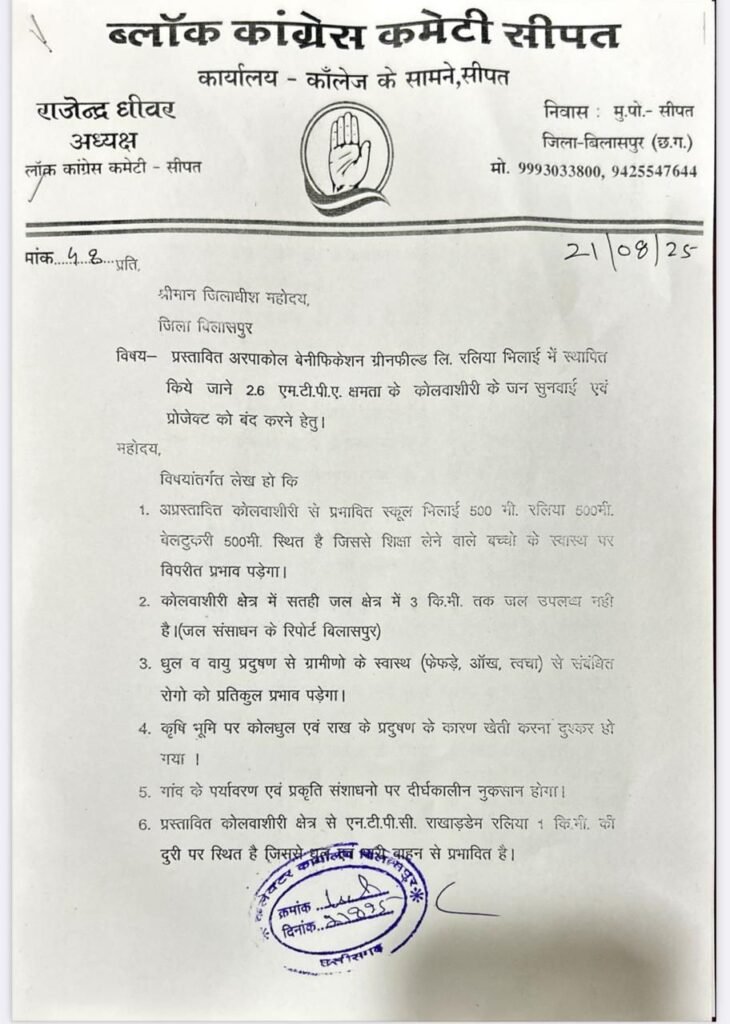 ब्लॉक कांग्रेस कमेटी सीपत
कार्यालय - कॉलेज के सामने,सीपत
राजेन्द्र धीवर
अध्यक्ष
लॉक कांग्रेस कमेटी - सीपत
निवास : मु.पो.- सीपत
जिला-बिलासपुर (छ.ग.)
मो. 9993033800, 9425547644
मांक....58...प्रति,
21/08/25
श्रीमान जिलाधीश महोदय,
जिला बिलासपुर
विषय– प्रस्तावित अरपाकोल बेनीफिकेशन ग्रीनफील्ड लि. रलिया भिलाई में स्थापित
किये जाने 2.6 एम.टी.पी.ए. क्षमता के कोलवाशीरी के जन सुनवाई एवं
प्रोजेक्ट को बंद करने हेतु।
महोदय,
विषयांतर्गत लेख हो कि
1. अप्रस्तादित कोलवाशीरी से प्रभावित स्कूल भिलाई 500 मी. रलिया 500मी.
बेलटुकरी 500मी. स्थित है जिससे शिक्षा लेने वाले बच्चो के स्वास्थ पर
विपरीत प्रभाव पड़ेगा।
2. कोलवाशीरी क्षेत्र में सतही जल क्षेत्र में 3 कि.मी. तक जल उपलब्ध नही
है।(जल संसाधन के रिपोर्ट बिलासपुर)
3. धुल व वायु प्रदुषण से ग्रामीणो के स्वास्थ (फेफड़े, ऑख, त्वचा) से संबंधित
रोगो को प्रतिकुल प्रभाव पड़ेगा।
4. कृषि भूमि पर कोलधुल एवं राख के प्रदुषण के कारण खेती करना दुश्कर हो
गया ।
5. गांव के पर्यावरण एवं प्रकृति संशाधनो पर दीर्घकालीन नुकसान होगा।
6. प्रस्तावित कोलवाशीरी क्षेत्र से एन.टी.पी.सी. राखाडडेम रलिया 1 कि.मी. की
दुरी पर स्थित है जिससे धुल एवं भारी वाहन से प्रभावित है।
कलेक्टर कार्यालय बिलासपुर
क्रमांक
दिनांक..21825
छत्तीसगढ़